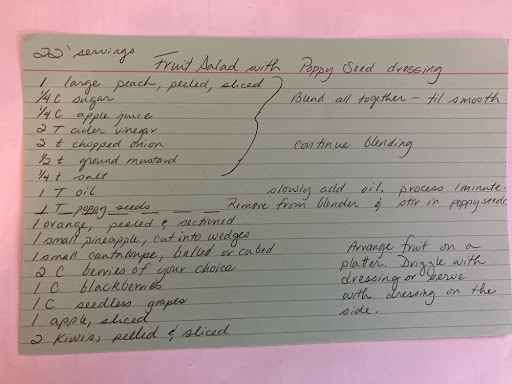 22 servings
Fruit Salad with Poppy Seed dressing
1 large peach, peeled, sliced
1/4 C sugar
Blend all together - til smooth
1/4 C apple juice
2 T cider vinegar
2 t chopped onion
continue blending
1/2 t ground mustard
1/4 t salt
1 T oil
slowly add oil. process 1 minute.
1 T poppy seeds
Remove from blender & stir in poppyseeds
1 orange, peeled & sectioned
1 small pineapple, cut into wedges
1 small cantaloupe, balled or cubed
2 C berries of your choice
1 C blackberries
1 C seedless grapes
1 apple, sliced
2 Kiwis, peeled & sliced
Arrange fruit on a
platter. Drizzle with
dressing or serve
with dressing on the
side.